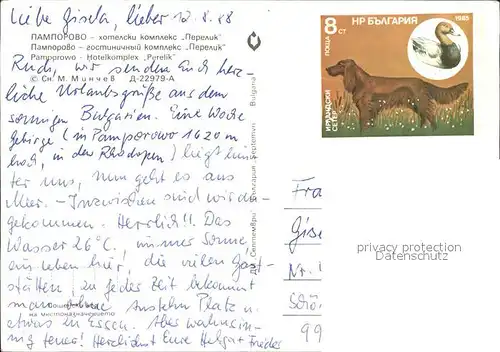 Liebe Gisela, lieber 12.8.88
ПАМПОРОВО - хотелски комплекс „Перелик"
Пампорово - гостиничный комплекс „Перелик"
Pamporowo - Hotelkomplex „Perelik"
Rudi, wir senden Euch herz-
© Сн. М. Минчев Д-22979-А
liche Urlaubsgrüße aus dem
sonnigen Bulgarien. Eine Woche
Gebirge (in Pamporowo 1620 m
hoch, in den Rhodopen) liegt hin
ter uns, nun geht es aus
Meer. - Inzwischen sind wir da-
gekommen. Herrlich!! Das
Wasser 26°C, immer Sonne,
ein Leben hier, die vielen Gast-
stätten, zu jeder Zeit bekommt
man ohne Anstehn Platz u.
на местоназначението
etwas zu Essen. Aber wahnsin-
nig teuer! Herzlichst Eure Helga + Frieder
ДП „Септември" България Septemvri Bulgaria
8 СТ
ПОЩА
НР БЪЛГАРИЯ
1985
ИРЛАНДСКИ
СЕТЕР
Fra
Gise
privacy protection
Datenschutz
Nr.
Schö
99